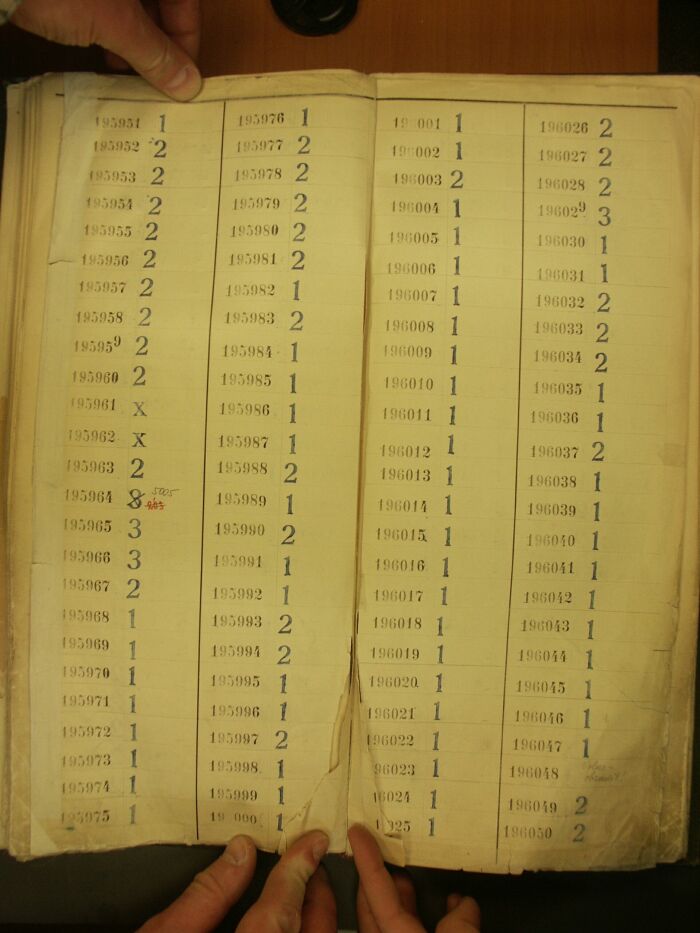 195951 1
195952 2
195953 2
195954 2
195955 2
195956 2
195957 2
195958 2
195959 2
195960 2
195961 x
195962 x
195963 2
195964 3 5005
195965 3
195966 3
195967 2
195968 1
195969 1
195970 1
195971 1
195972 1
195973 1
195974 1
195975 1
195976 1
195977 2
195978 2
195979 2
195980 2
195981 2
195982 1
195983 2
195984 1
195985 1
195986 1
195987 1
195988 2
195989 1
195990 2
195991 1
195992 1
195993 2
195994 2
195995 1
195996 1
195997 2
195998 1
195999 1
19 000 1
19 001 1
196002 1
196003 2
196004 1
196005 1
196006 1
196007 1
196008 1
196009 1
196010 1
196011 1
196012 1
196013 1
196014 1
196015 1
196016 1
196017 1
196018 1
196019 1
196020 1
196021 1
196022 1
96023 1
6024 1
025 1
196026 2
196027 2
196028 2
196029 3
196030 1
196031 1
196032 2
196033 2
196034 2
196035 1
196036 1
196037 2
196038 1
196039 1
196040 1
196041 1
196042 1
196043 1
196044 1
196045 1
196046 1
196047 1
196048
196049 2
196050 2